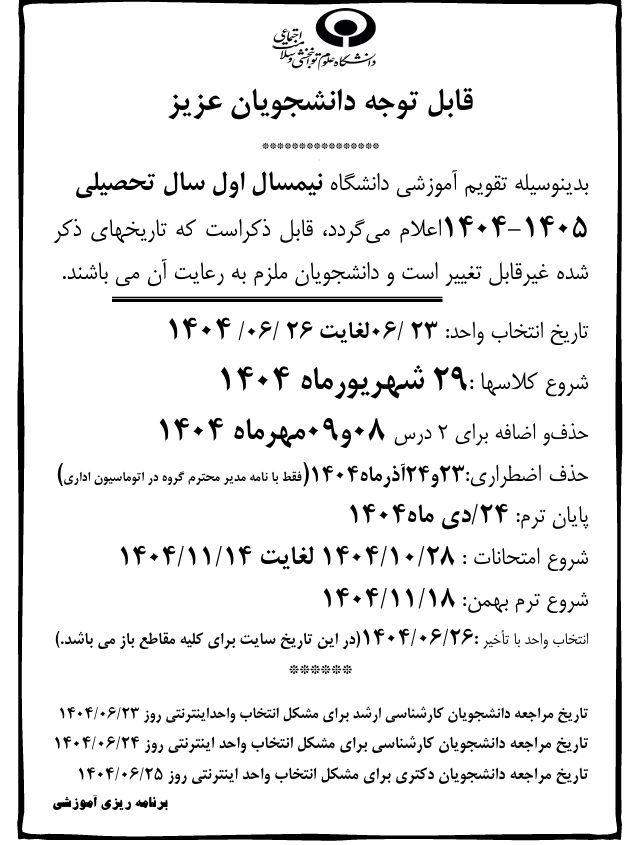 دانشگاه علوم توانبخشی و سلامت اجتماعی
قابل توجه دانشجویان عزیز
****************
بدینوسیله تقویم آموزشی دانشگاه نیمسال اول سال تحصیلی
۱۴۰۵-۱۴۰۴اعلام می‌گردد، قابل ذکراست که تاریخهای ذکر
شده غیرقابل تغییر است و دانشجویان ملزم به رعایت آن می باشند.
تاریخ انتخاب واحد: ۲۳ /۰۶لغایت ۲۶ /۰۶/ ۱۴۰۴
شروع کلاسها :۲۹ شهریورماه ۱۴۰۴
حذف‌و اضافه برای ۲ درس ۰۸و۰۹مهرماه ۱۴۰۴
حذف اضطراری:۲۳و۲۴آذرماه۱۴۰۴(فقط با نامه مدیر محترم گروه در اتوماسیون اداری)
پایان ترم: ۲۴/دی ماه۱۴۰۴
شروع امتحانات : ۱۴۰۴/۱۰/۲۸ لغایت ۱۴۰۴/۱۱/۱۴
شروع ترم بهمن: ۱۴۰۴/۱۱/۱۸
انتخاب واحد با تأخیر :۱۴۰۴/۰۶/۲۶(در این تاریخ سایت برای کلیه مقاطع باز می باشد.)
******
تاریخ مراجعه دانشجویان کارشناسی ارشد برای مشکل انتخاب واحداینترنتی روز ۱۴۰۴/۰۶/۲۳
تاریخ مراجعه دانشجویان کارشناسی برای مشکل انتخاب واحد اینترنتی روز ۱۴۰۴/۰۶/۲۴
تاریخ مراجعه دانشجویان دکتری برای مشکل انتخاب واحد اینترنتی روز ۱۴۰۴/۰۶/۲۵
برنامه ریزی آموزشی